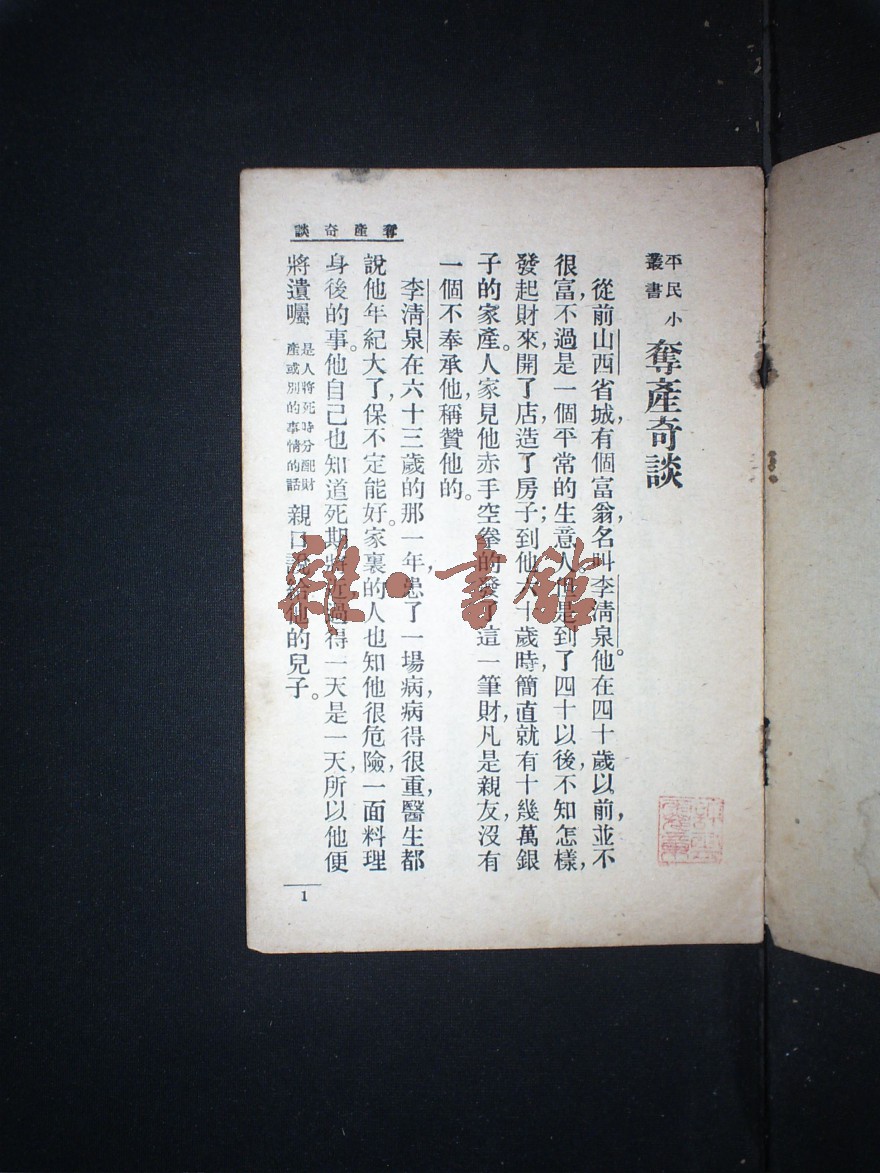 平民小
叢書
奪產奇談
從前山西省城，有個富翁，名叫李清泉。他在四十歲以前，並不
很富，不過是一個平常的生意人。他是到了四十以後，不知怎樣，
發起財來，開了店，造了房子；到他六十歲時，簡直就有十幾萬銀
子的家產。人家見他赤手空拳的發了這一筆財，凡是親友，沒有
一個不奉承他，稱贊他的。
李清泉在六十三歲的那一年，患了一場病，病得很重，醫生都
說他年紀大了，保不定能好。家裏的人也知他很危險，一面料理
身後的事。他自己也知道死期將近，過得一天是一天，所以他便
將遺囑
是人將死時分配財
產或別的事情的話
親口說給他的兒子。
奪產奇談
1
雜·書館